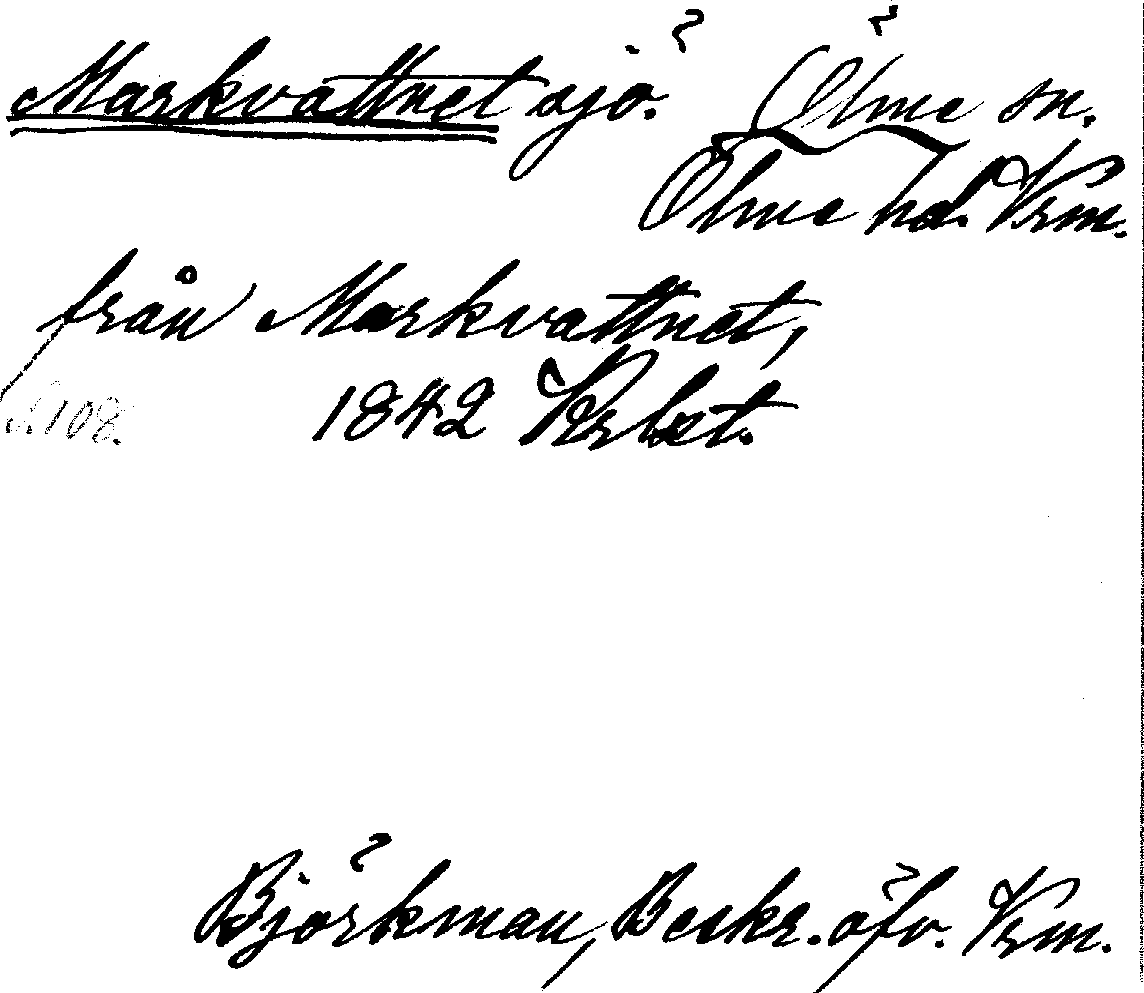 Markvattnet sjö. Ölme sn.
Ölme hd. Vrm.
från Markvattnet,
s. 108. 1842
Björkman, Beskr. öfv. Vrm.